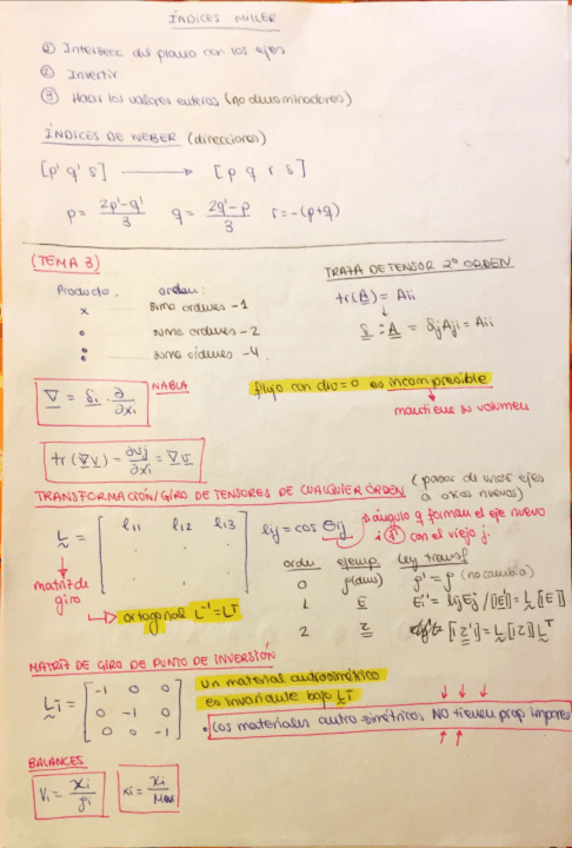 ÍNDICES MILLER
① Intersecc del plano con los ejes
② Invertir.
③ Hacer los valores enteros (no denominadores)
ÍNDICES DE WEBER (direcciones)
[p' q' s] → [p q r s]
p = 2p'-q' / 3 q = 2q'-p / 3 r = -(p+q)
(TEMA 3)
TRAZA DE TENSOR 2º ORDEN
Producto. orden:
tr(A) = Aii
x suma ordenes -1
↓
• suma ordenes -2
δ : A = δjAji = Aii
: suma ordenes -4.
∇ = δi · ∂/∂xi NABLA
flujo con div=0 es incompresible
mantiene su volumen
tr(∇v) = ∂vj/∂xi = ∇v
TRANSFORMACIÓN/GIRO DE TENSORES DE CUALQUIER ORDEN (pasar de unos ejes a otros nuevos)
L = [ l11 l12 l13 ] lij = cos θij
→ ángulo q forman el eje nuevo
i con el viejo j.
matriz de giro
orden ejemp ley transf
0 ρ(dens) ρ' = ρ (no cambia)
1 E Ei' = lijEj / [E] = L [E]
ortogonal L⁻¹ = Lᵀ
2 Σ [Σ'] = L [Σ] Lᵀ
MATRIZ DE GIRO DE PUNTO DE INVERSIÓN
LI = [ -1 0 0
0 -1 0
0 0 -1 ]
un material centrosimétrico
es invariante bajo LI
• Los materiales centro-simétricos NO tienen prop impares
BALANCES
Vi = xi / ρi
xi = xi